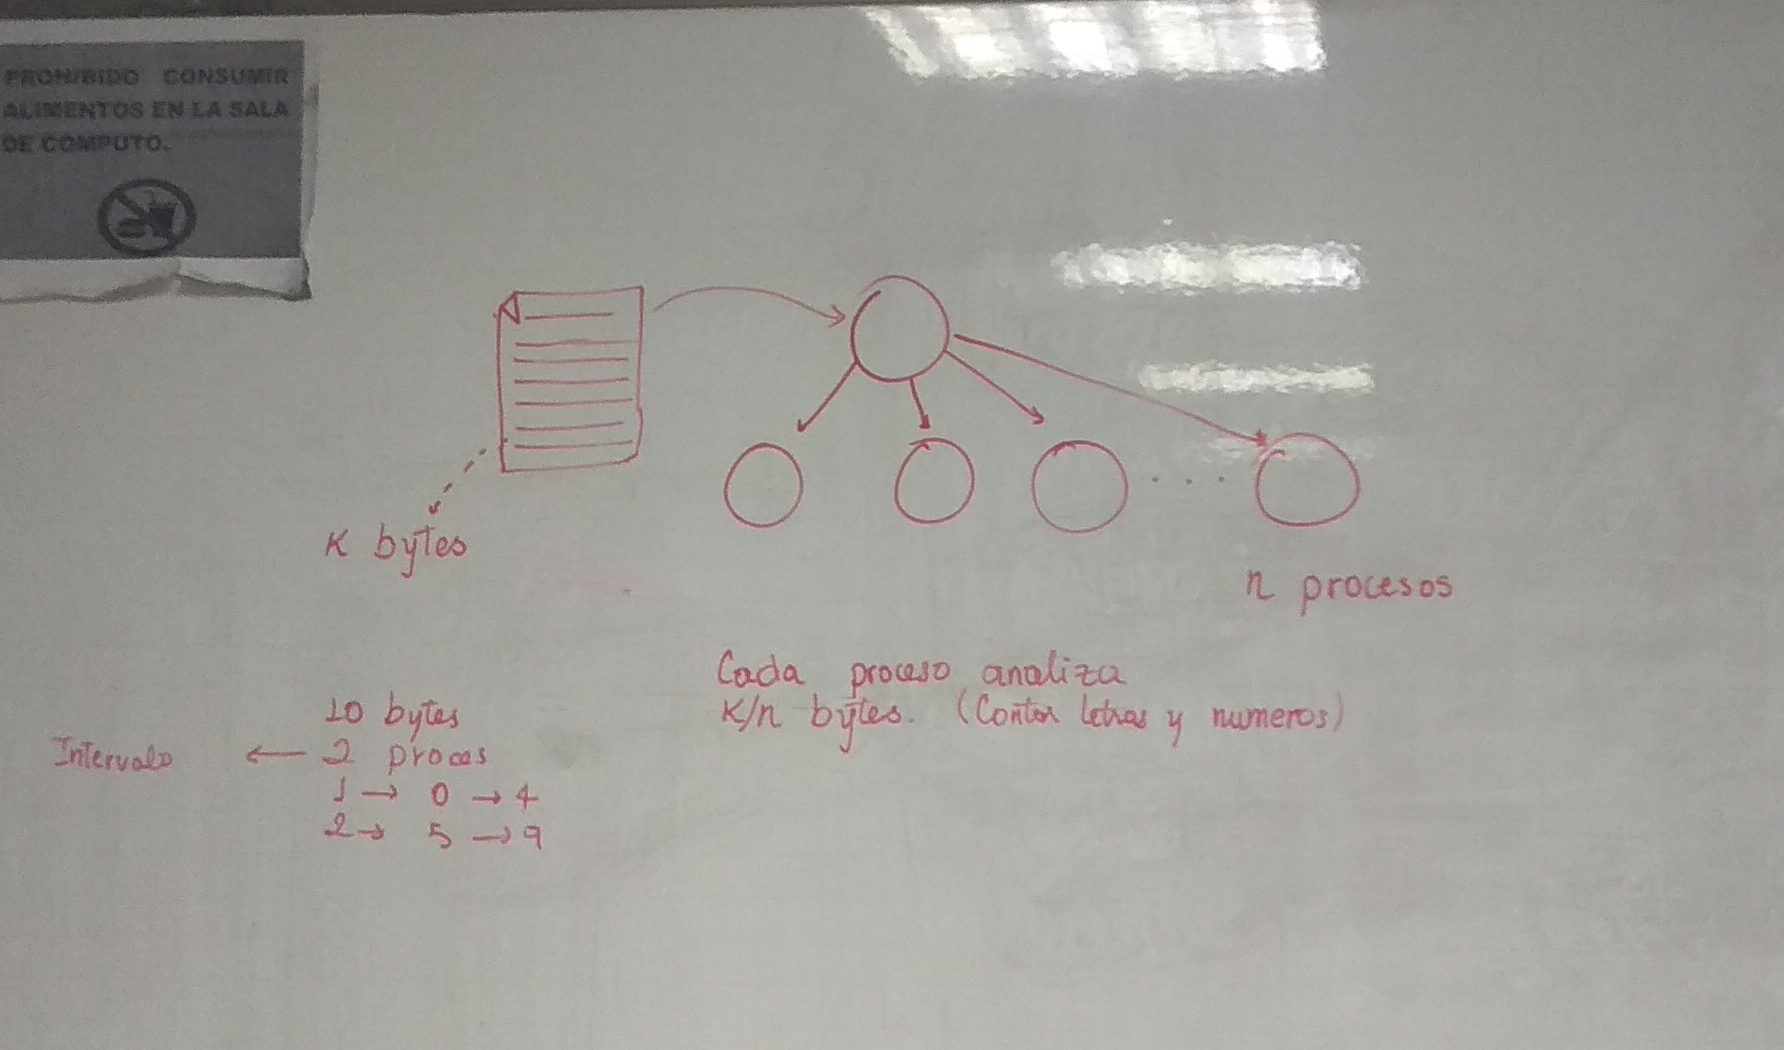 PROHIBIDO CONSUMIR
ALIMENTOS EN LA SALA
DE COMPUTO.
K bytes
n procesos
Cada proceso analiza
K/n bytes. (Contar letras y numeros)
10 bytes
Intervalo ← 2 proces
1 → 0 → 4
2 → 5 → 9